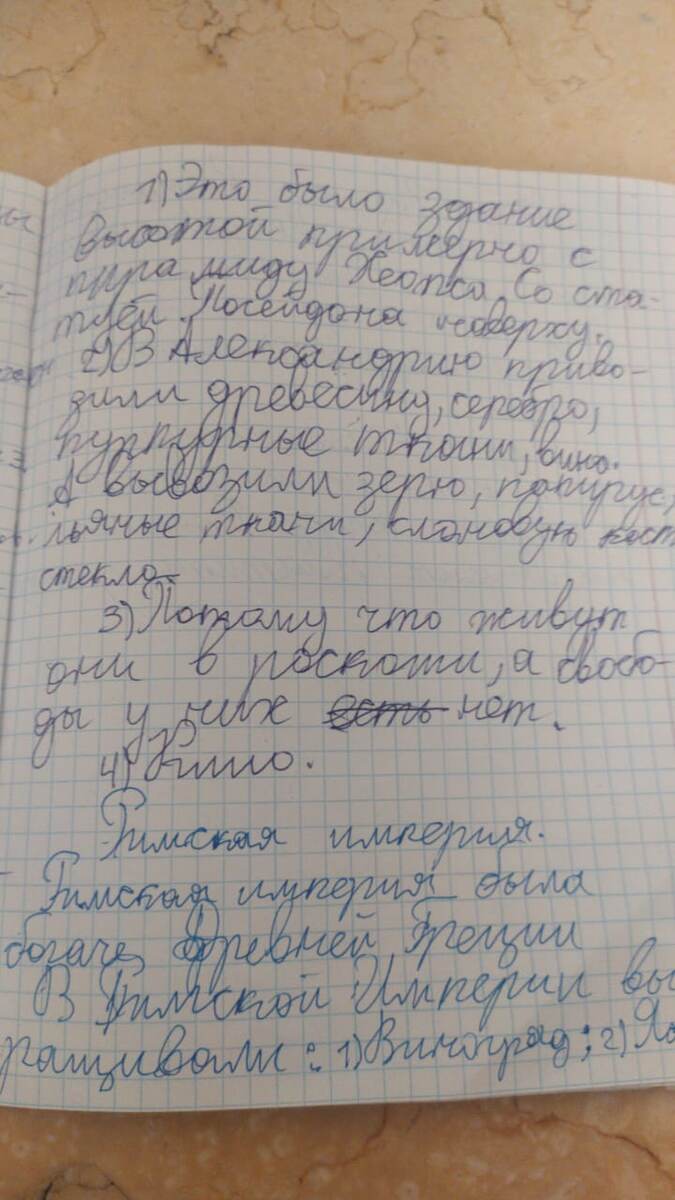 1) Это было здание
высотой примерно с
пирамиду Хеопса. Со ста-
туей Посейдона наверху.
2) В Александрию приво-
зили древесину, серебро,
пурпурные ткани, вино.
А вывозили зерно, папирус,
льяные ткани, слоновую кост
стекло.
3) Потому что живут
они в роскоши, а свобо-
ды у них нет.
4)
Римская империя.
Римская империя была
богаче Древней Греции
В Римской Империи вы
ращивали: 1) Виноград; 2)